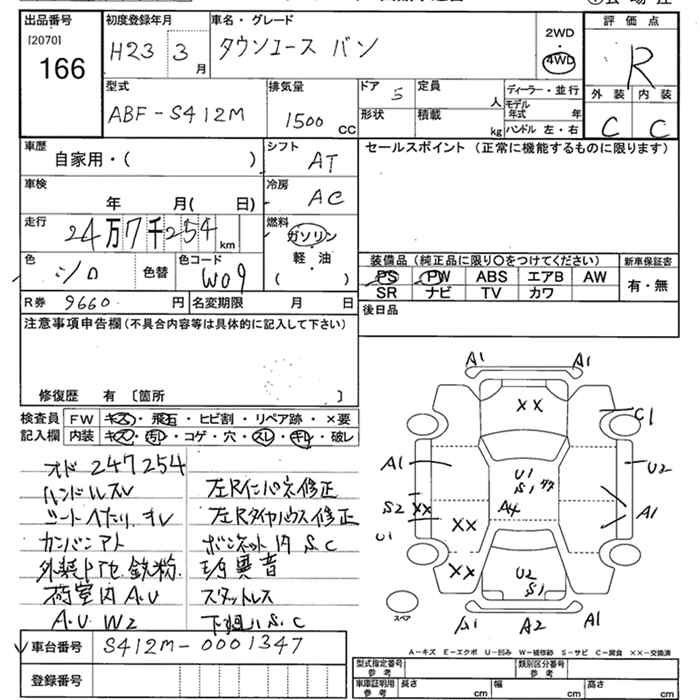 出品番号 初度登録年月 車名・グレード 評価点
[2070] 166
H23 3月 タウンエース バン 2WD 4WD R
型式 排気量 ドア 5 定員 人 ディーラー・並行 外装 内装
ABF-S412M 1500 CC 形状 積載 kg モデル年式 年 ハンドル 左・右 C C
車歴 シフト セールスポイント (正常に機能するものに限ります)
自家用・( ) AT
車検 冷房
年 月( 日) AC
走行 燃料
24万7千254km ガソリン
色 色コード 軽・油
シロ 色替 W09 ( )
装備品 (純正品に限り〇をつけてください) 新車保証書
PS PW ABS エアB AW 有・無
SR ナビ TV カワ
R券 9660 円 名変期限 月 日 後日品
注意事項申告欄 (不具合内容等は具体的に記入して下さい)
修復歴 有 〔箇所 〕
検査員 FW キズ・飛石・ヒビ割・リペア跡・×要
記入欄 内装 キズ・汚レ・コゲ・穴・スレ・キレ・破レ
オド 247254
ハンドルスレ 左Rインパネ修正
シートヘタリ、キレ 左Rタイヤハウス修正
カンバンアト ボンネット内S.C
外装ドアセ 鉄粉
荷室内A.U スタットレス
A.U W2 下廻りS.C
車台番号 S412M-0001347
登録番号
A1 A1
XX C1
A1 U1 U2
S1
S2 XX A4 A1
U1 XX
XX U2
S1
スペア S1 A2 A1
A-キズ E-エクボ U-凹み W-補修跡 S-サビ C-腐食 ××-交換済
型式指定番号 参考 類別区分番号 参考
車庫証明用 参考 長さ cm 幅 cm 高さ cm